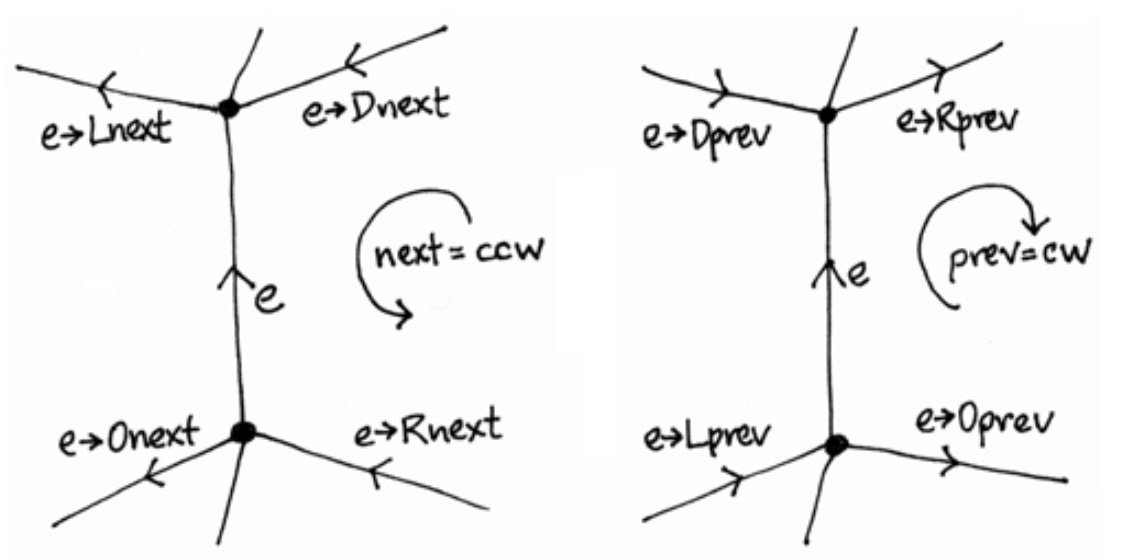 e→Lnext
e→Dnext
next = ccw
e
e→Onext
e→Rnext
e→Dprev
e→Rprev
prev=cw
e
e→Lprev
e→Oprev